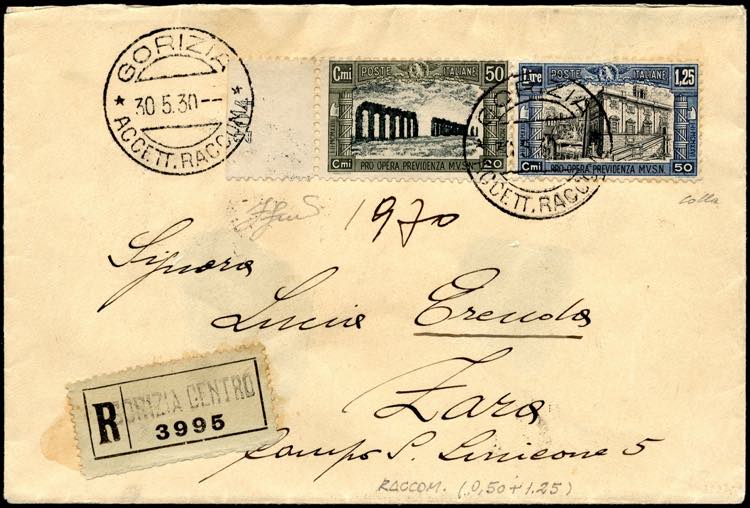 GORIZIA
30.5.30
ACCETT. RACCOM.
Cmi POSTE ITALIANE 50
Cmi PRO OPERA PREVIDENZA M.V.S.N. 20
Lire POSTE ITALIANE 1,25
Cmi PRO OPERA PREVIDENZA M.V.S.N. 50
GORIZIA
ACCETT. RACCOM
colla
1970
Signora
Lucia
Zara
Campo S.
5
R GORIZIA CENTRO
3995
RACCOM. (0,50+1.25)